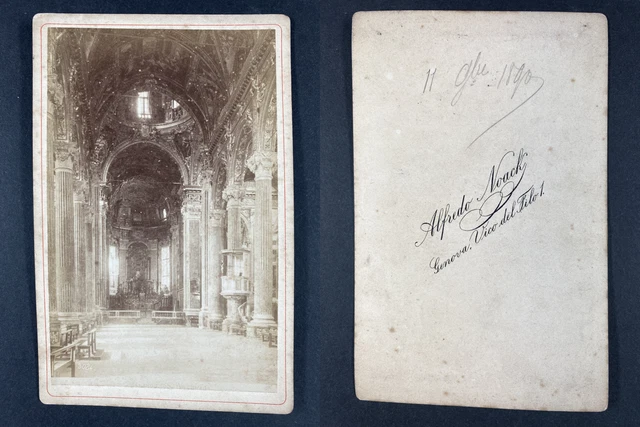 11 9bre 1890
Alfredo Noack
Genova. Vico del Filo 1.